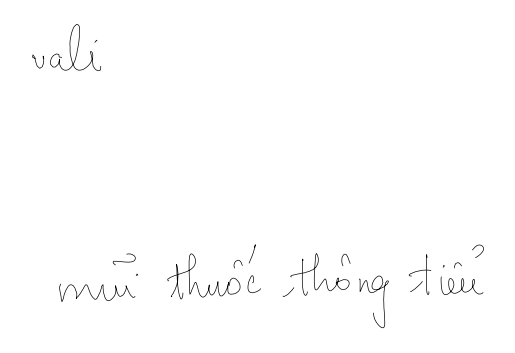 vali
mũi thuốc thông tiểu